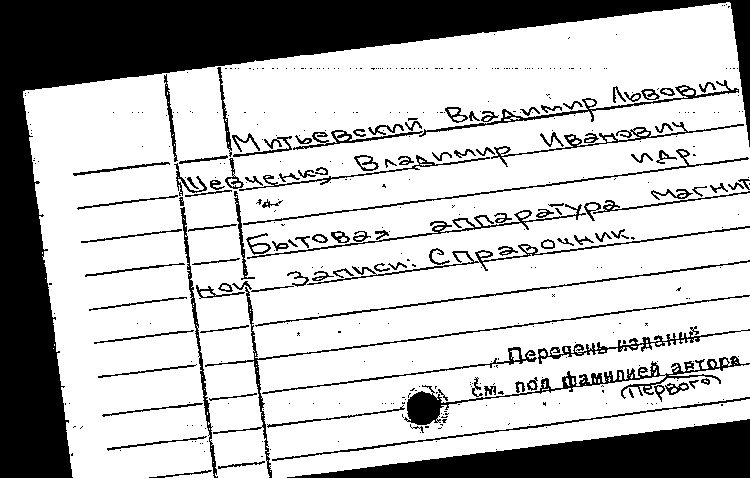 Митьевский, Владимир Львович,
Шевченко, Владимир Иванович
и др.
Бытовая аппаратура магнит
ной записи: Справочник.
Перечень изданий
см. под фамилией автора
(первого)